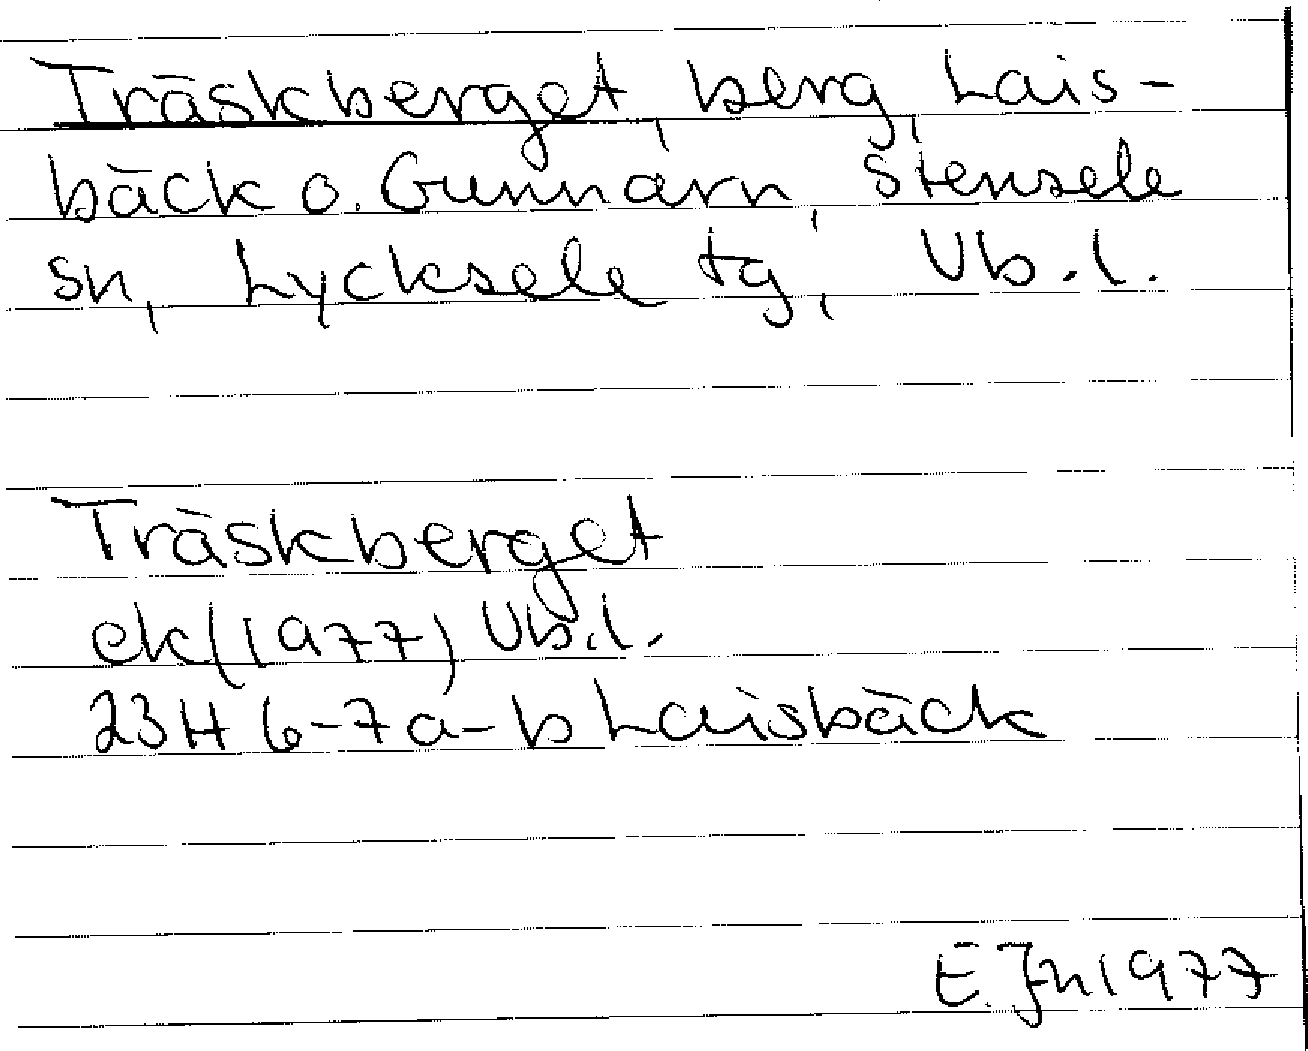 Träskberget, berg, Lais-
bäck o. Gunnarn, Stensele
sn, Lycksele tg, Vb. l.
Träskberget
ek (1977) Vb. l.
23H 6-7a-b Laisbäck
E. Jn 1977